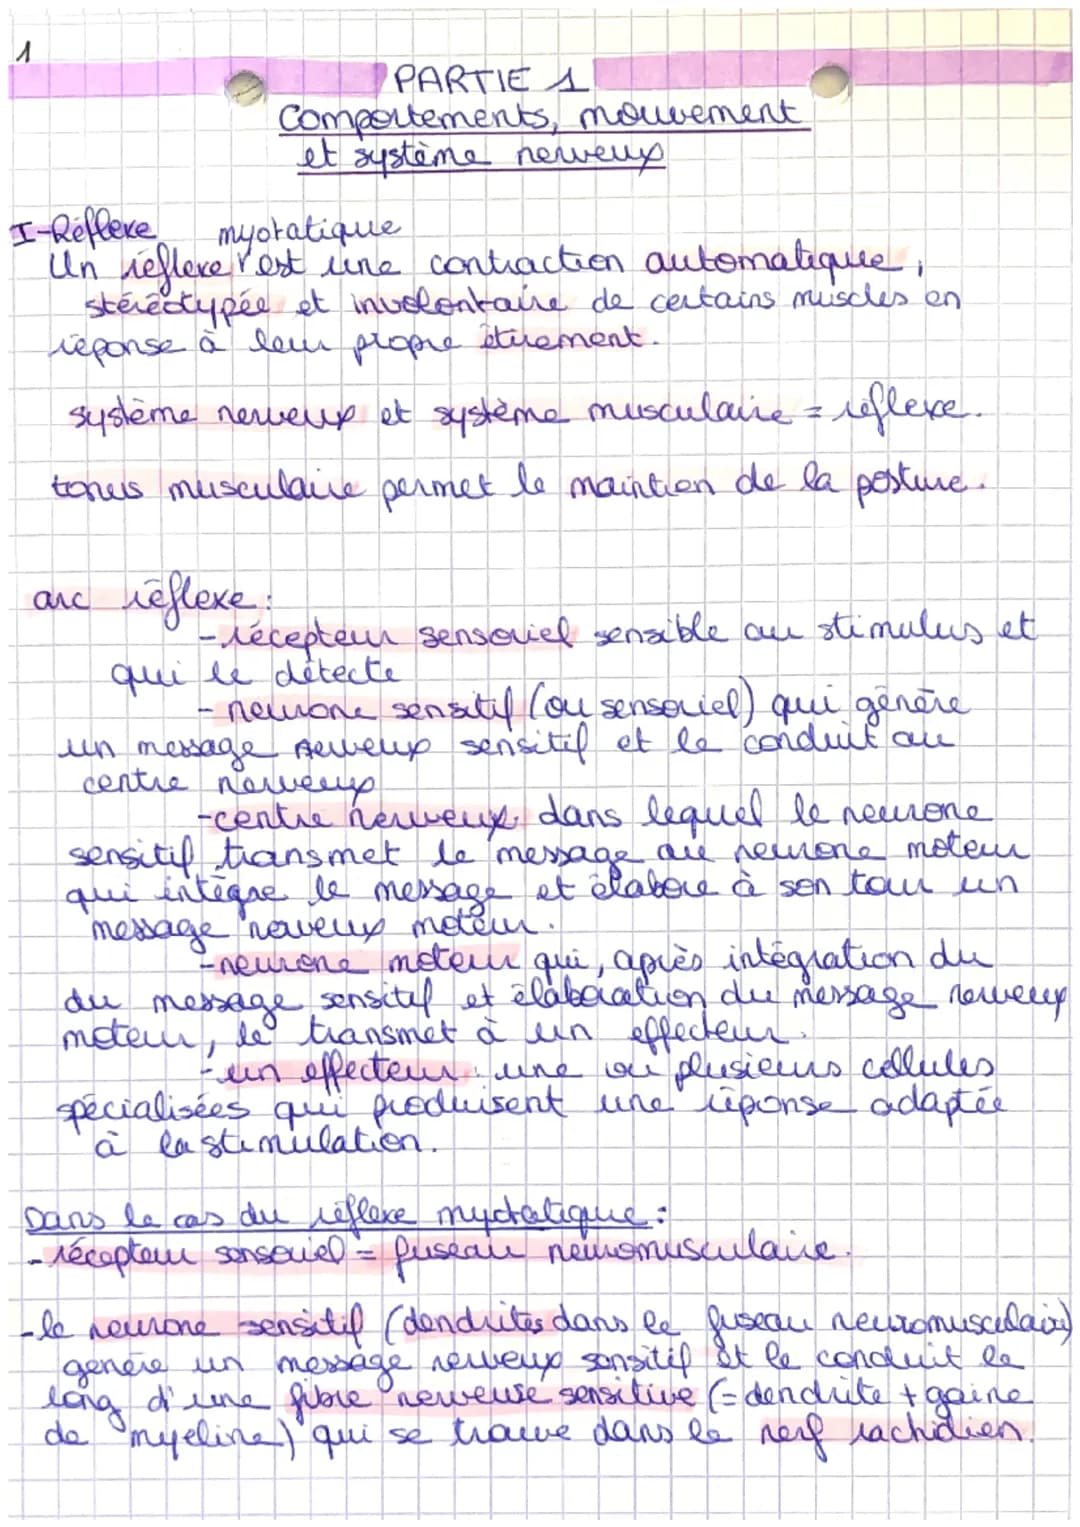 1
PARTIE 1
Comportements, mouvement
et système nerveux
I-Réflexe myotatique
Un réflexe r est une contraction automatique,
stéréotypée et involontaire de certains muscles en
réponse à leur propre étirement.
système nerveux et système musculaire = réflexe.
tonus musculaire permet le maintien de la posture.
arc réflexe :
-récepteur sensoriel sensible au stimulus et
qui le détecte
- neurone sensitif (ou sensoriel) qui génère
un message nerveux sensitif et le conduit au
centre nerveux
-centre nerveux dans lequel le neurone
sensitif transmet le message au neurone moteur
qui intègre le message et élabore à son tour un
message nerveux moteur.
-neurone moteur qui, après intégration du
du message sensitif et élaboration du message nerveux
moteur, le transmet à un effecteur.
-un effecteur : une ou plusieurs cellules
spécialisées qui produisent une réponse adaptée
à la stimulation.
Dans le cas du réflexe myotatique :
- récepteur sensoriel = fuseau neuromusculaire.
-le neurone sensitif (dendrites dans le fuseau neuromusculaire)
génère un message nerveux sensitif et le conduit le
long d'une fibre nerveuse sensitive (= dendrite + gaine
de myeline) qui se trouve dans le nerf rachidien.